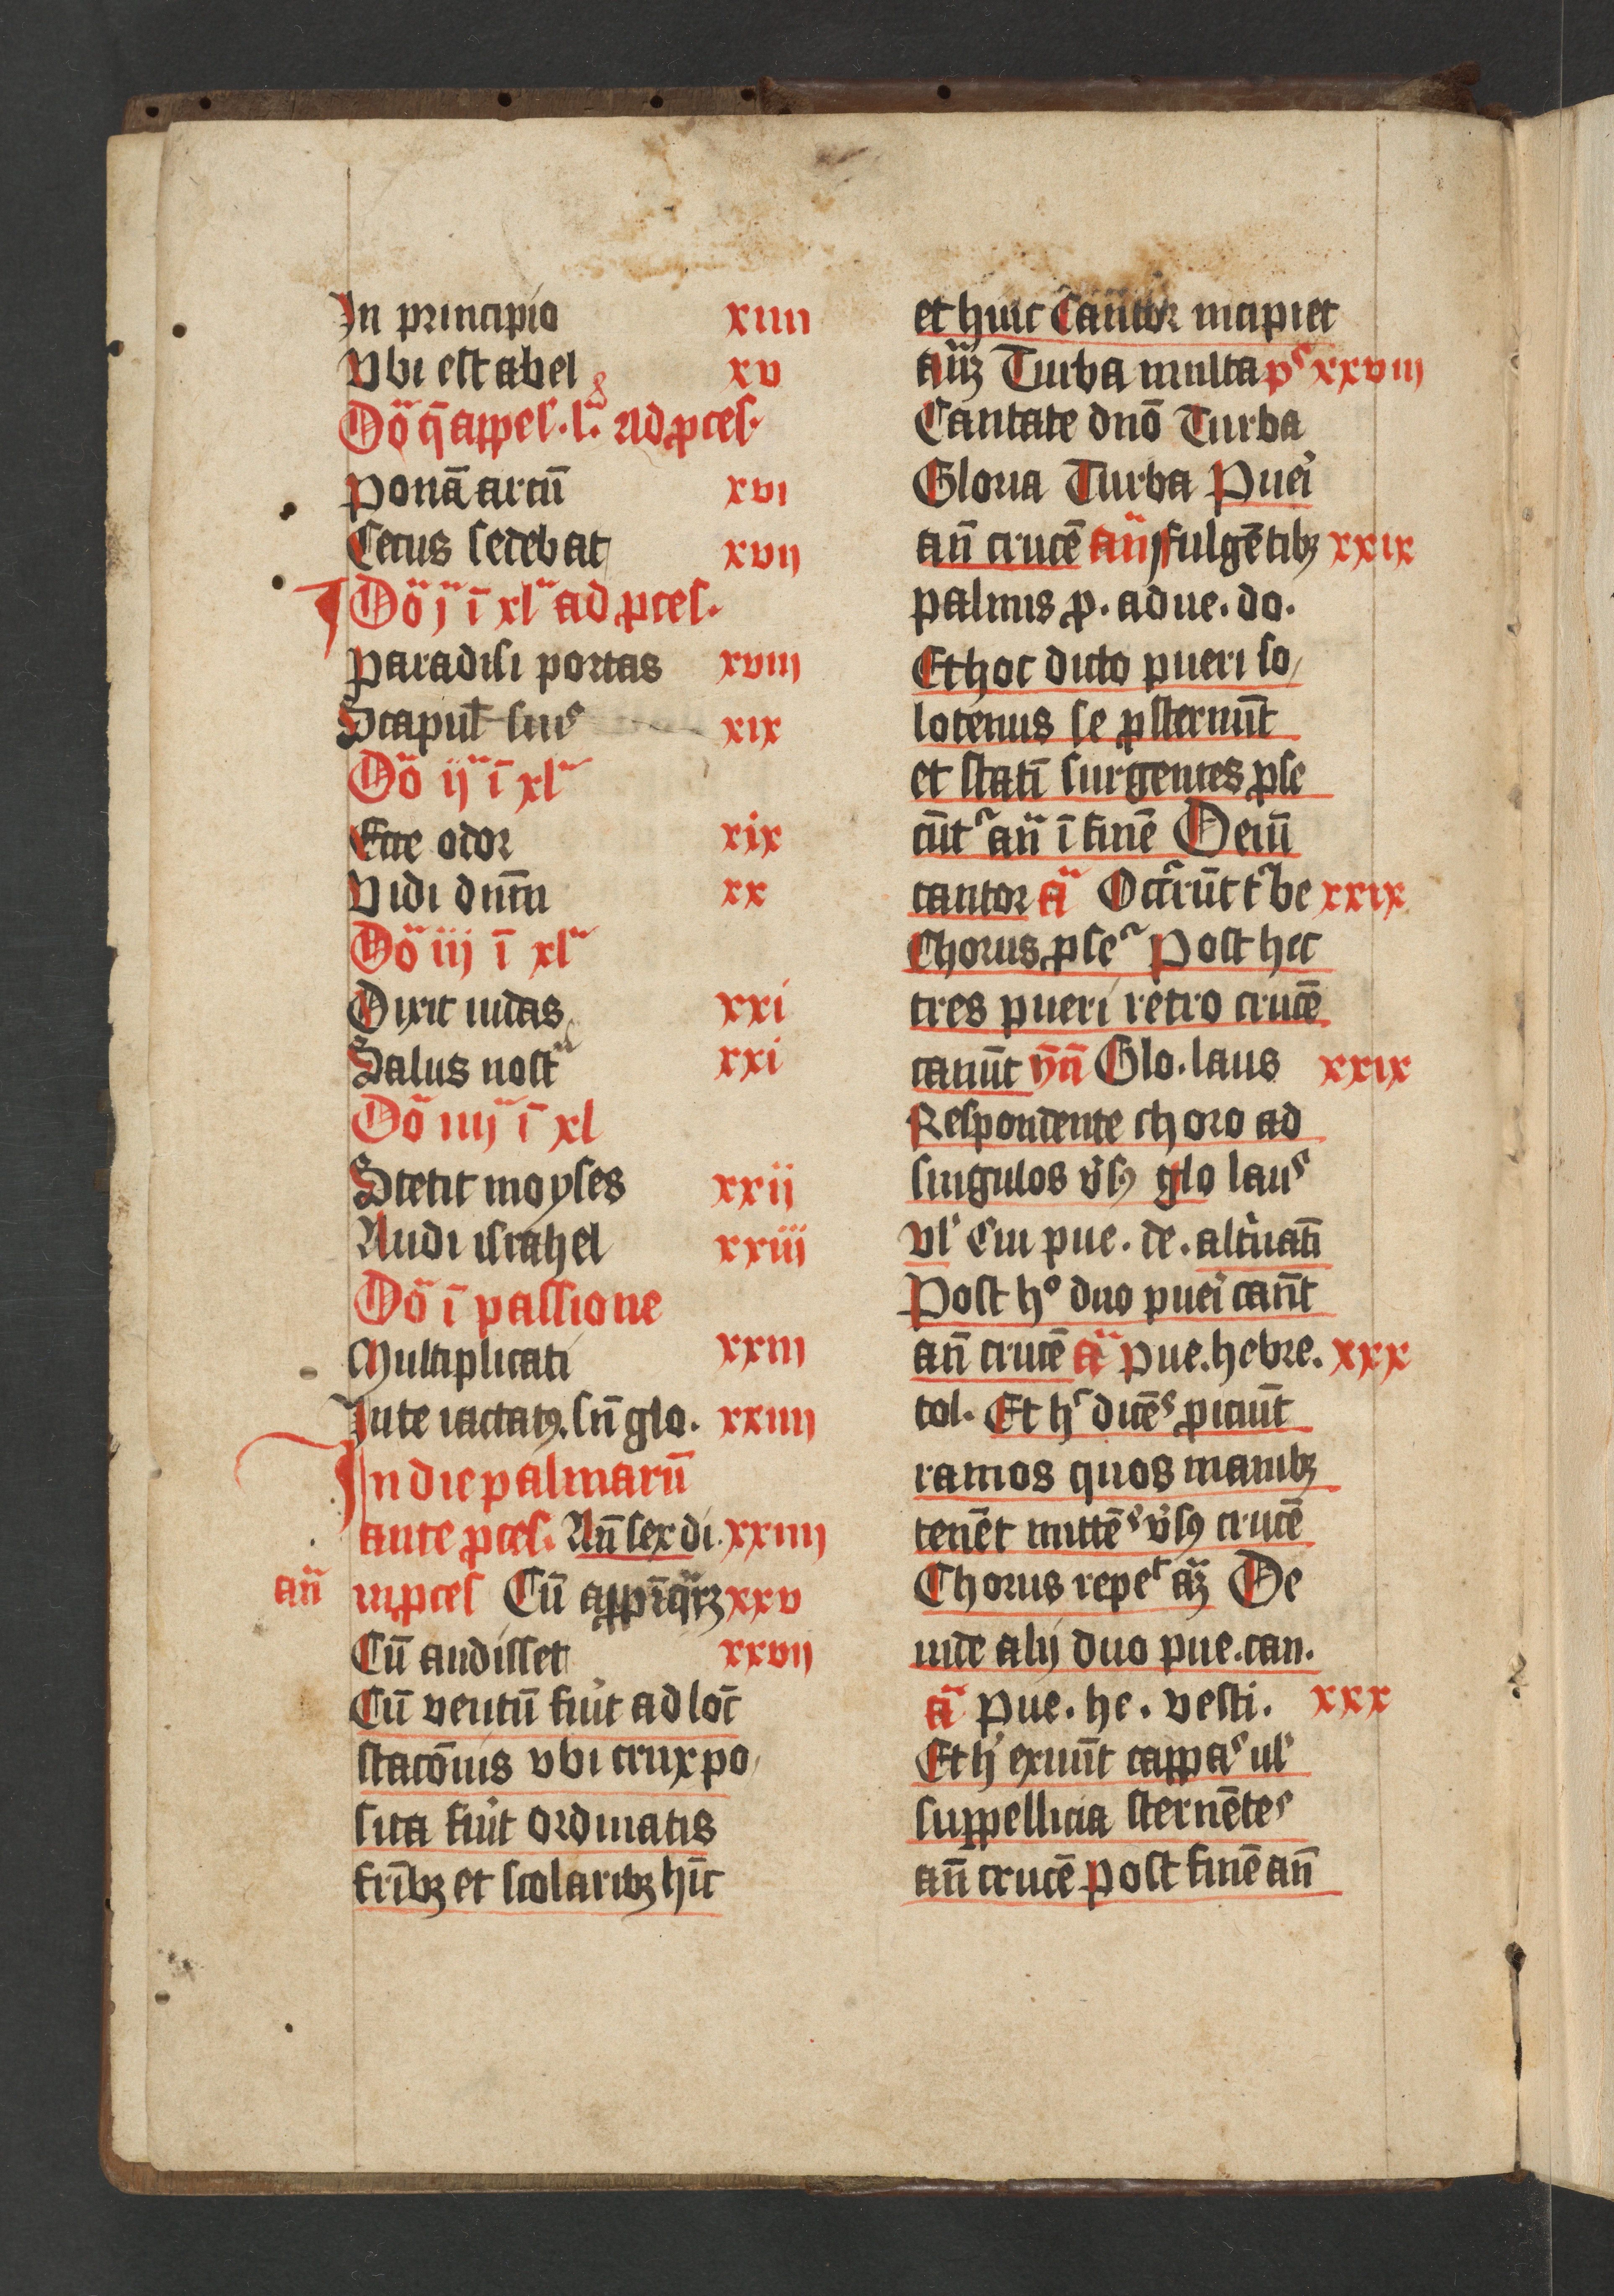 In principio xiiii
Vbi est abel xv
Do᷑ q̄ appel. l. Ad ꝓces.
Ponā arcū xvi
Cecus sedebat xvii
Do᷑ j ī xl ad ꝓces.
Paradisi portas xviii
Scapul suis xix
Do᷑ ij ī xl
Ecce odor xix
Vidi dnm̄ xx
Do᷑ iij ī xl
Dixit iudas xxi
Salus nost xxi
Do᷑ iiij ī xl
Stetit moyses xxii
Audi israhel xxiii
Do᷑ ī passione
Multiplicati xxiii
In te iactatꝰ. sn̄ glo. xxiiii
In die palmarū
ante ꝓces. An̄ sex di. xxiiii
an̄ in ꝓces Cū apꝓīq̄rꝫ xxv
Cū audisset xxvii
Cū ventū fuīt ad loc̄
stacōnis vbi crux po
sita fuīt ordinatis
frībꝫ et scolaribꝫ hīc
et huic Cantor incipiet
an̄ꝫ Turba multa pˢ xxviii
Cantate dnō Turba
Gloria Turba Pueī
an̄ crucē an̄ fulgētibꝫ xxix
palmis ꝓ. adue. do.
Et hoc dicto pueri so
lotenus se ꝓsternūt
et statī surgentes ꝓse
cūtʳ an̄ ī finē Deīn
cantor a᷑ Occʳrūt tʳbe xxix
Chorus ꝓseʳ Post hec
tres pueri retro crucē
canūt ȳn̄ Glo. laus xxix
Respondente choro ad
singulos v̄sꝰ glo lauˢ
vl' Cui pue. de. alt̄natī
Post hᵒ duo pueī canūt
an̄ crucē a᷑ Pue. hebre. xxx
tol. Et hˢ dicēˢ ꝓiciūt
ramos quos manibꝫ
tenēt mittēˢ v̄sꝰ crucē
Chorus repeᵗ an̄ꝫ De
inde alij duo pue. can.
a᷑ Pue. he. vesti. xxx
Et hī exuūt cappaˢ ul'
suppellicia sternēteˢ
an̄ crucē Post finē an̄